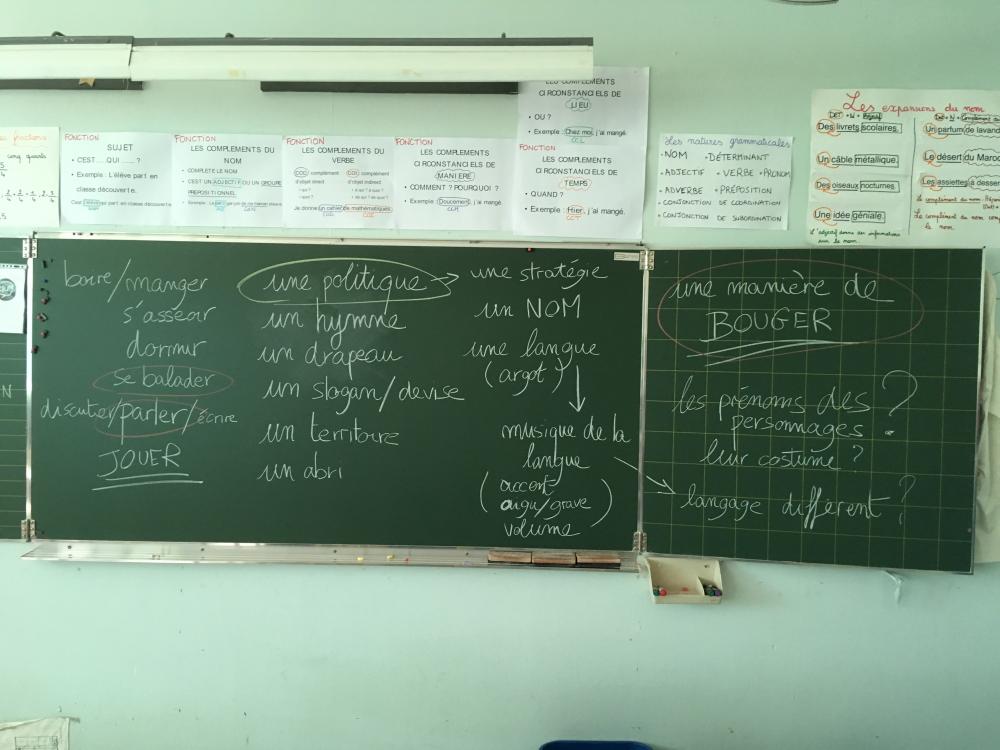 cinq quarts
FONCTION
SUJET
• C'EST ..... QUI ..... ?
• Exemple : L'élève part en
classe découverte.
FONCTION
LES COMPLEMENTS DU
NOM
• COMPLETE LE NOM
• C'EST UN ADJECTIF OU UN GROUPE
PREPOSITIONNEL
FONCTION
LES COMPLEMENTS DU
VERBE
COD complément
d'objet direct
COI complément
d'objet indirect
Je donne un cahier de mathématiques.
FONCTION
LES COMPLEMENTS
CIRCONSTANCIELS DE
MANIERE
• COMMENT ? POURQUOI ?
• Exemple : Doucement, j'ai mangé.
CCM
LES COMPLEMENTS
CIRCONSTANCIELS DE
LIEU
• OU ?
• Exemple : Chez moi, j'ai mangé.
CCL
FONCTION
LES COMPLEMENTS
CIRCONSTANCIELS DE
TEMPS
• QUAND ?
• Exemple : Hier, j'ai mangé.
CCT
Les natures grammaticales
• NOM • DÉTERMINANT
• ADJECTIF • VERBE • PRONOM
• ADVERBE • PRÉPOSITION
• CONJONCTION DE COORDINATION
• CONJONCTION DE SUBORDINATION
Les expansions du nom
DET + N + Adjectif
Des livrets scolaires.
Un câble métallique.
Des oiseaux nocturnes.
Une idée géniale.
L'adjectif donne des informations
sur le nom.
Un parfum de lavand
Le désert du Maroc
Les assiettes à desser
Le complément du nom
le nom
boire/manger
s'asseoir
dormir
se balader
discuter/parler/écrire
JOUER
une politique →
un hymne
un drapeau
un slogan/devise
un territoire
un abri
une stratégie
un NOM
une langue
(argot)
musique de la
langue
(accent
aigu/grave
volume)
une manière de
BOUGER
les prénoms des
personnages ?
leur costume ?
langage différent ?
N